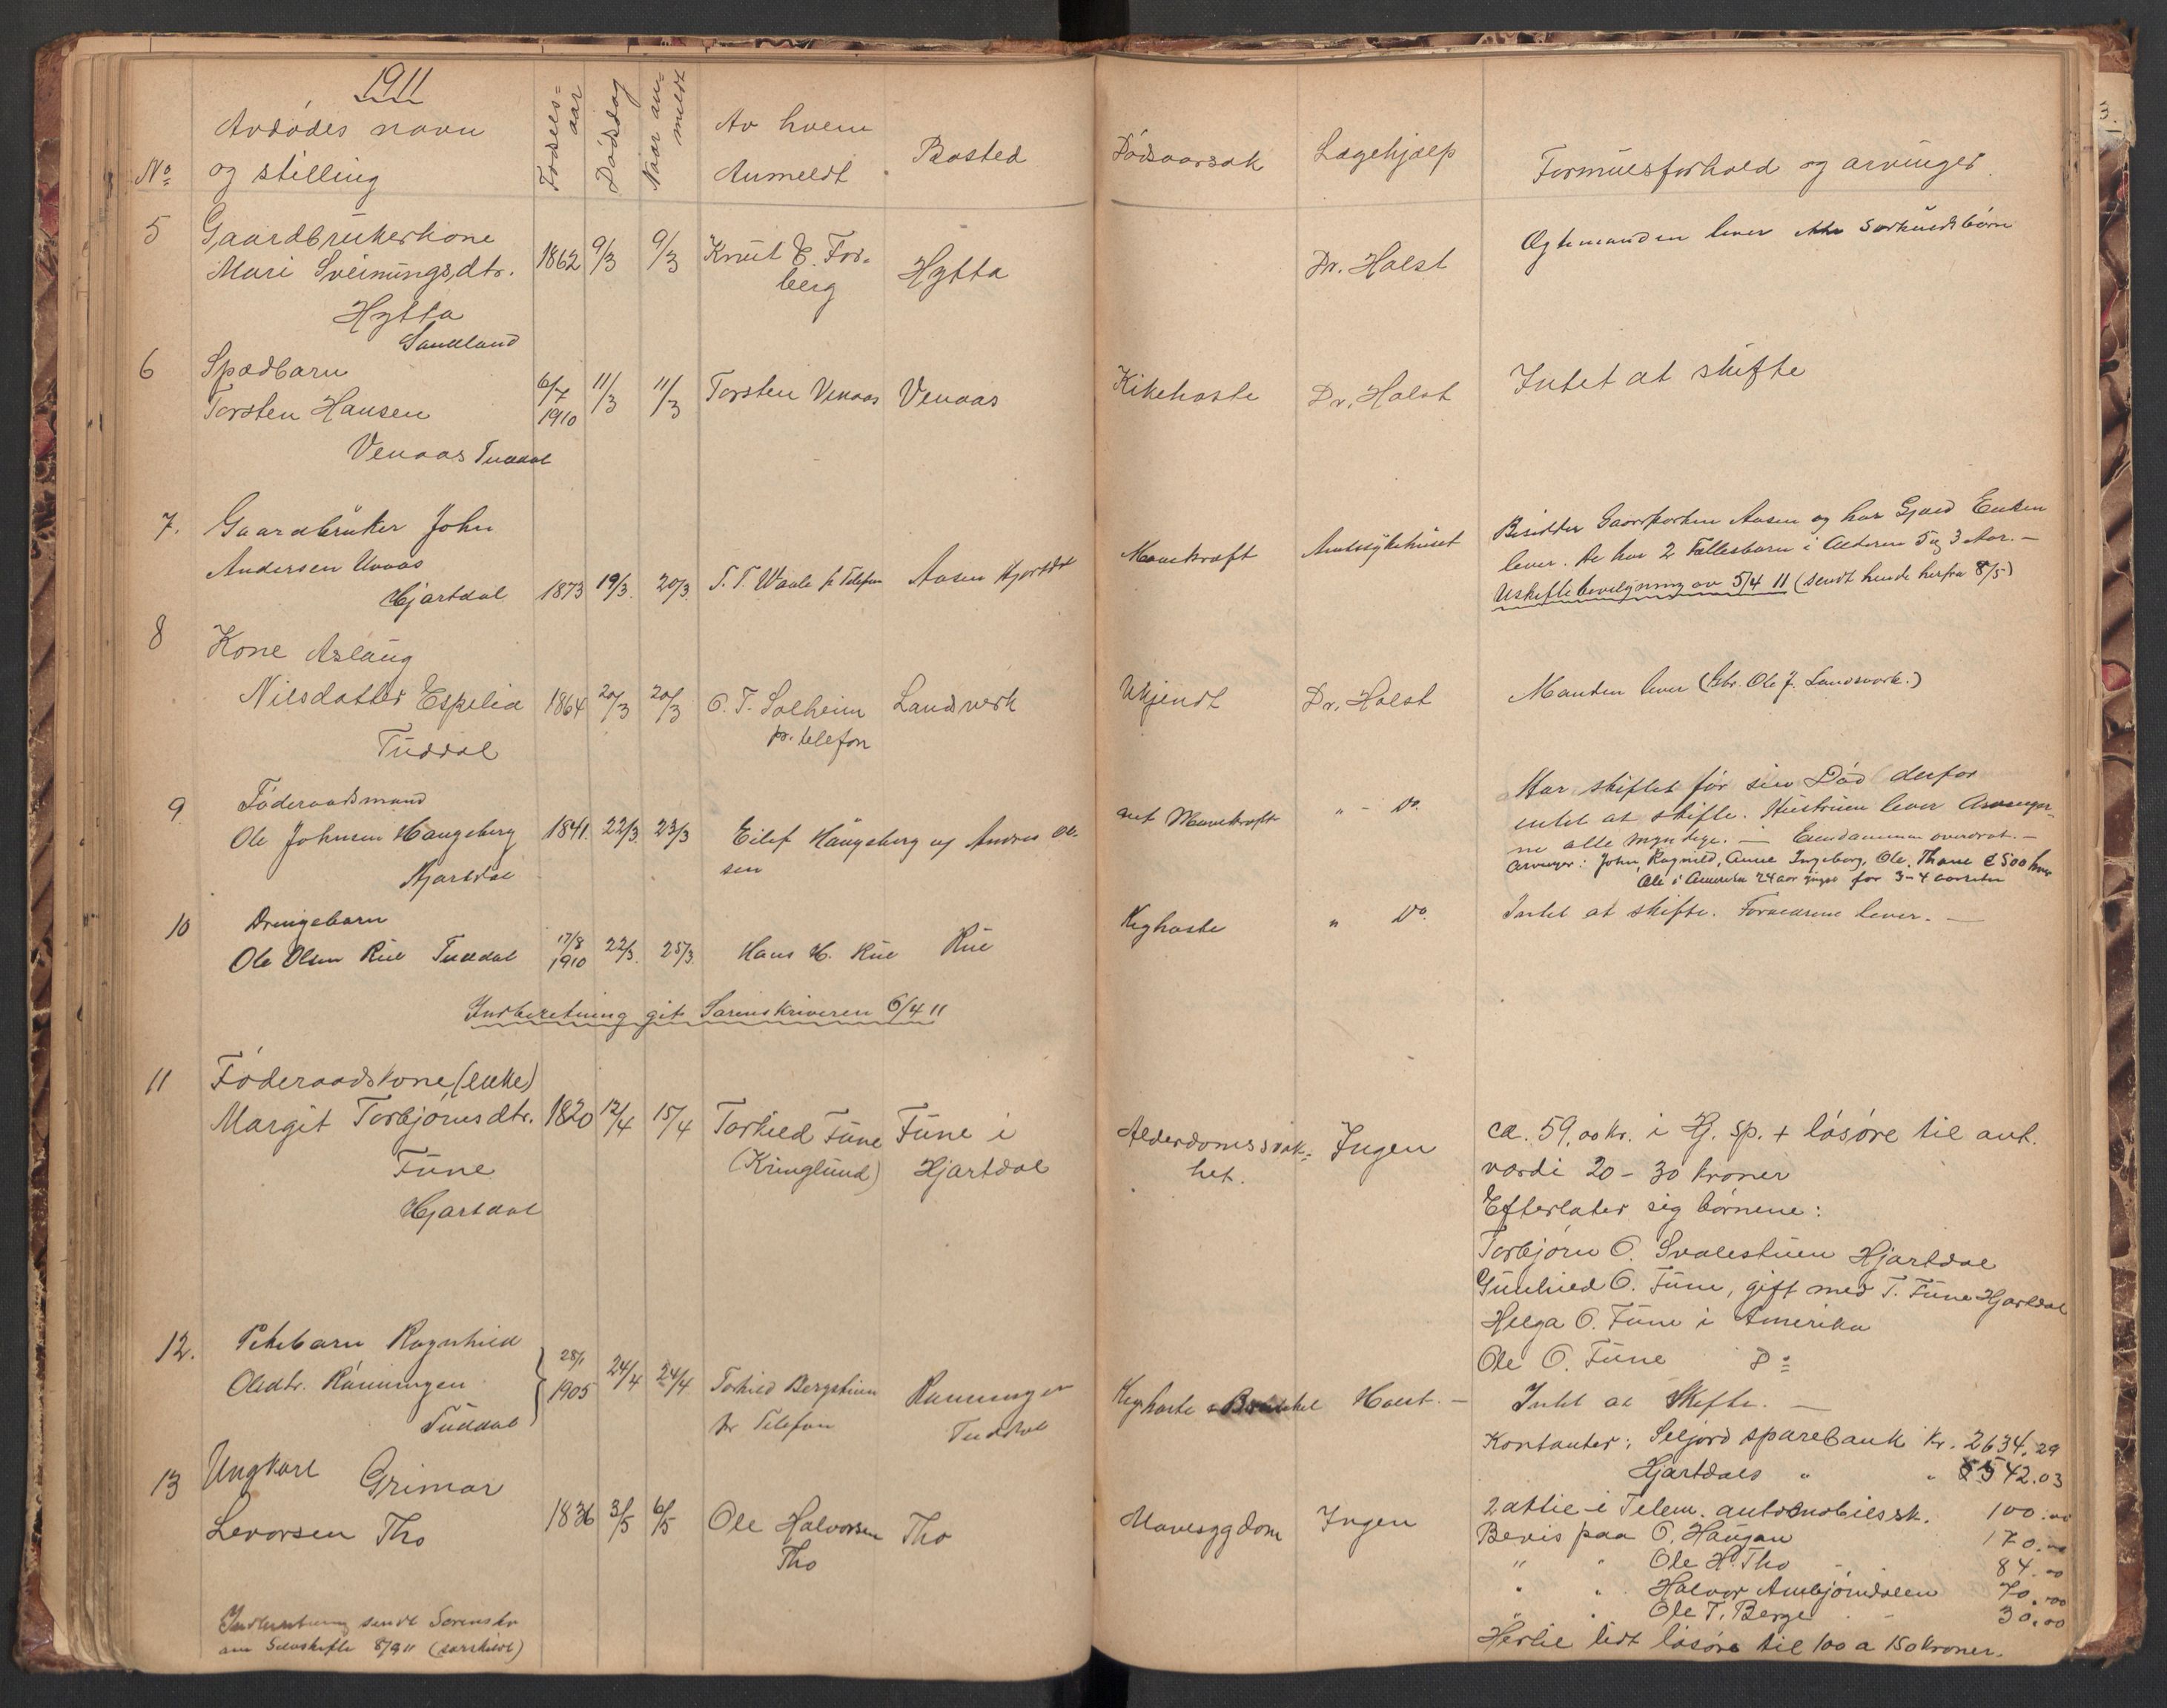 1911
No
Avdødes navn
og stilling
Fødsels=
aar
Dødsdag
Naar an=
meldt
Av hvem
Anmeldt
Bosted
Dødsaarsak
Lægehjælp
Formuesforhold og arvinger.
5
Gaardbrukerkone
Mari Sveinungsdtr.
Hytta
Sauland
1862 9/3 9/3
Knut E. For-
berg
Hytta
Dr. Holst
Ægtemanden lever særkuldsbørn
6
Spædbarn
Torsten Hansen
Venaas Tuddal
6/7
1910
11/3 11/3
Torsten Venaas
Venaas
Kikehoste
Dr. Holst
Intet at skifte
7.
Gaardbruker John
Andersen
Hjartdal
1873 19/3. 20/3.
pr Telefon
Aasen Hjartdal
Mavekræft
Amtssykehuset
Besidder Gaardparten Aasen og har Gjæld Enken
lever. De har 2 Fællesbarn i Alderen 5 og 3 Aar. -
Uskiftebevilgning av 5/4 11 (sendt hende herfra 8/5)
8
Kone Aslaug
Nilsdatter Espelid
Tuddal
1864 20/3 20/3
O. T. Solheim
pr. telefon
Landsverk
Ukjendt
Dr. Holst
Manden lever (Gbr. Ole J. Landsverk.)
9
Føderaadsmand
Ole Johnsen Haugeberg
Hjartdal
1841. 22/3. 23/3
Eilef Haugeberg og Andres Ol-
sen
ant Mavekræft
" - Do.
Har skiftet før sin Død derfor
intet at skifte. Hustruen lever Arvinger-
ne alle myndige. - Eiendommen overdrat. -
Arvinger: John, Ragnild, Anne Ingeborg, Ole, Thone à 500 kr
Ole i Amerika 24 aar for 3-4 aar siden
10
Drengebarn
Ole Olsen Rue Tuddal
17/8
1910
22/3. 25/3.
Hans H. Rue
Rue
Kighoste
" Do.
Intet at skifte. Forældrene lever. -
Indberetning git Sorenskriveren 6/4 11
11
Føderaadskone, (enke)
Margit Torbjørnsdtr.
Fune
Hjartdal
1820 12/4 15/4
Torkild Fune
(Kringlund)
Fune i
Hjartdal
Alderdomssvak=
het.
Ingen
ca. 59,00 kr. i Hj. sp. + løsøre til ant.
værdi 20 - 30 kroner
Efterlater sig børnene:
Torbjørn O. Svalestuen Hjartdal
Gunhild O. Fune, gift med T. Fune Hjartdal
Helga O. Fune i Amerika
Ole O. Fune Do
12.
Pikebarn Ragnhild
Olsdtr. Rønningen
Tuddal
28/1
1905
24/4 24/4
Torkild Bergstuen
pr Telefon
Rønningen
Tuddal
Kighoste
Holst. -
Intet at skifte. -
13
Ungkarl Grimar
Levorsen Tho
1836 3/5 6/5
Ole Halvorsen
Tho
Tho
Mavesygdom
Ingen
Kontanter: Seljord sparebank kr. 2634.29
Hjartdals " " 542.03
2 aktie i Telem. automobilselsk. 100.00
Bevis paa O. Haugan 170.00
" " Ole H. Tho 84.00
" " Halvor Ambjørndalen 70.00
" " Ole T. Berge 30.00
Hertil lidt løsøre til 100 a 150 kroner.
Indberetning sendt Sorenskr
om Selvskifte 8/9 11 (særskildt)
3.